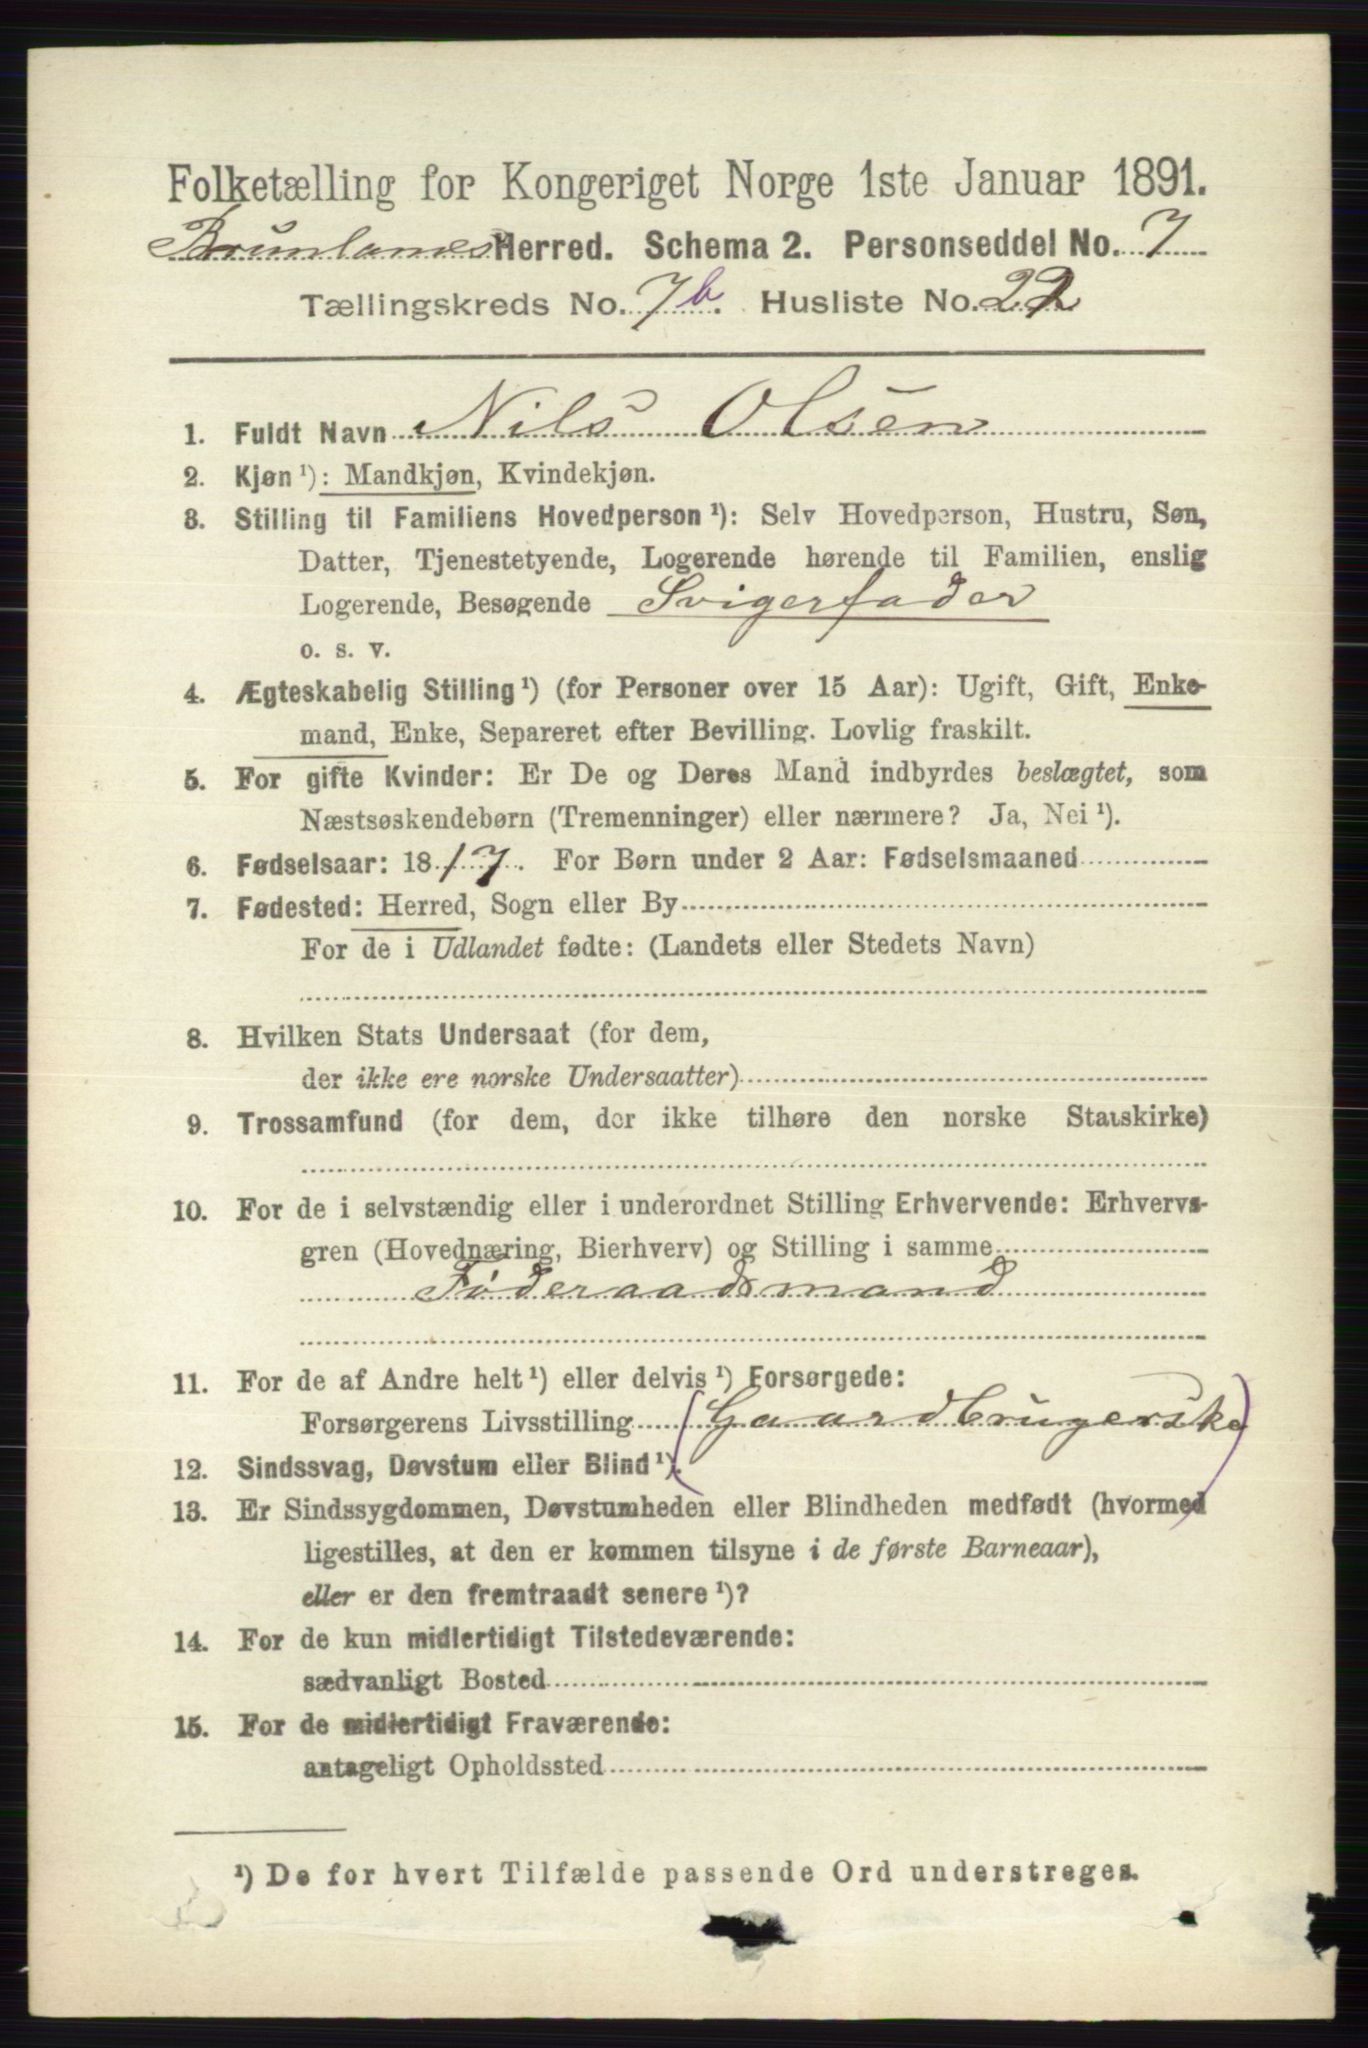 Folketælling for Kongeriget Norge 1ste Januar 1891.
Brunlanes Herred. Schema 2. Personseddel No. 7
Tællingskreds No. 7b. Husliste No. 22
1. Fuldt Navn Nils Olsen
2. Kjøn ¹): Mandkjøn, Kvindekjøn.
3. Stilling til Familiens Hovedperson ¹): Selv Hovedperson, Hustru, Søn,
Datter, Tjenestetyende, Logerende hørende til Familien, enslig
Logerende, Besøgende Svigerfader
o. s. v.
4. Ægteskabelig Stilling ¹) (for Personer over 15 Aar): Ugift, Gift, Enke-
mand, Enke, Separeret efter Bevilling. Lovlig fraskilt.
5. For gifte Kvinder: Er De og Deres Mand indbyrdes beslægtet, som
Næstsøskendebørn (Tremenninger) eller nærmere? Ja, Nei ¹).
6. Fødselsaar: 1817. For Børn under 2 Aar: Fødselsmaaned
7. Fødested: Herred, Sogn eller By
For de i Udlandet fødte: (Landets eller Stedets Navn)
8. Hvilken Stats Undersaat (for dem,
der ikke ere norske Undersaatter)
9. Trossamfund (for dem, der ikke tilhøre den norske Statskirke)
10. For de i selvstændig eller i underordnet Stilling Erhvervende: Erhvervs-
gren (Hovednæring, Bierhverv) og Stilling i samme
Føderaadsmand
11. For de af Andre helt ¹) eller delvis ¹) Forsørgede:
Forsørgerens Livsstilling (Gaardbrugerske)
12. Sindssvag, Døvstum eller Blind ¹).
13. Er Sindssygdommen, Døvstumheden eller Blindheden medfødt (hvormed
ligestilles, at den er kommen tilsyne i de første Barneaar),
eller er den fremtraadt senere ¹)?
14. For de kun midlertidigt Tilstedeværende:
sædvanligt Bosted
15. For de midlertidigt Fraværende:
antageligt Opholdssted
¹) De for hvert Tilfælde passende Ord understreges.